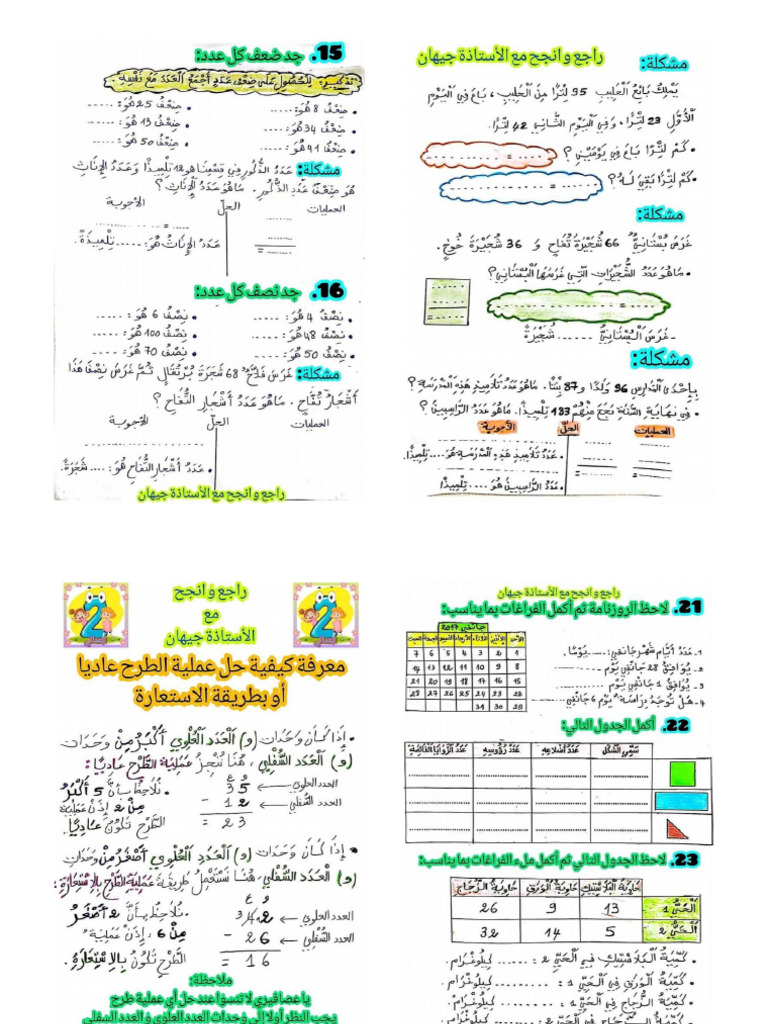 راجع و انجح مع الأستاذة جيهان
مشكلة:
يَمْلِكُ بَائِعُ الْحَلِيبِ 95 لِتْرًا مِنَ الْحَلِيبِ ، بَاعَ فِي الْيَوْمِ
الْأَوَّلِ 23 لِتْرًا ، وَفِي الْيَوْمِ الثَّانِي 42 لِتْرًا.
• كَمْ لِتْرًا بَاعَ فِي يَوْمَيْنِ ؟
.......... = ..........
• كَمْ لِتْرًا بَقِيَ لَهُ ؟
.......... = ..........
مشكلة:
غَرَسَ بُسْتَانِيٌّ 66 شُجَيْرَةَ تُفَّاحٍ وَ 36 شُجَيْرَةَ خُوخٍ.
• مَا هُوَ عَدَدُ الشُّجَيْرَاتِ الَّتِي غَرَسَهَا الْبُسْتَانِيُّ ؟
.......... = ..........
- غَرَسَ الْبُسْتَانِيُّ ........ شُجَيْرَةً
مشكلة:
بِإِحْدَى الْمَدَارِسِ 96 وَلَدًا وَ 87 بِنْتًا. مَا هُوَ عَدَدُ تَلَامِيذِ هَذِهِ الْمَدْرَسَةِ ؟
• فِي نِهَايَةِ السَّنَةِ نَجَحَ مِنْهُمْ 133 تِلْمِيذًا. مَا هُوَ عَدَدُ الرَّاسِبِينَ ؟
العمليات الحلّ الأجوبة
• عَدَدُ تَلَامِيذِ هَذِهِ الْمَدْرَسَةِ هُوَ .... تِلْمِيذًا.
• عَدَدُ الرَّاسِبِينَ هُوَ .... تِلْمِيذًا
15. جد ضعف كل عدد:
تذكير: لِلْحُصُولِ عَلَى ضِعْفِ عَدَدٍ أَجْمَعُ الْعَدَدَ مَعَ نَفْسِهِ.
• ضِعْفُ 8 هُوَ: ...... • ضِعْفُ 25 هُوَ: ......
• ضِعْفُ 34 هُوَ: ...... • ضِعْفُ 13 هُوَ: ......
• ضِعْفُ 41 هُوَ: ...... • ضِعْفُ 50 هُوَ: ......
مشكلة: عَدَدُ الذُّكُورِ فِي قِسْمِنَا هُوَ 12 تِلْمِيذًا وَعَدَدُ الْإِنَاثِ
هُوَ ضِعْفُ عَدَدِ الذُّكُورِ. مَا هُوَ عَدَدُ الْإِنَاثِ ؟
العمليات الحلّ الأجوبة
عَدَدُ الْإِنَاثِ هُوَ: ...... تِلْمِيذَةً.
16. جد نصف كل عدد:
• نِصْفُ 4 هُوَ: ...... • نِصْفُ 6 هُوَ: ......
• نِصْفُ 48 هُوَ: ...... • نِصْفُ 100 هُوَ: ......
• نِصْفُ 50 هُوَ: ...... • نِصْفُ 70 هُوَ: ......
مشكلة: غَرَسَ فَلَّاحٌ 68 شَجَرَةَ بُرْتُقَالٍ ثُمَّ غَرَسَ نِصْفَ هَذَا
أَشْجَارَ تُفَّاحٍ. مَا هُوَ عَدَدُ أَشْجَارِ التُّفَّاحِ ؟
العمليات الحلّ الأجوبة
عَدَدُ أَشْجَارِ التُّفَّاحِ هُوَ: .... شَجَرَةً.
راجع و انجح مع الأستاذة جيهان
راجع و انجح مع الأستاذة جيهان
21. لاحظ الروزنامة ثم أكمل الفراغات بما يناسب:
جانفي 2017
الأحد الاثنين الثلاثاء الأربعاء الخميس الجمعة السبت
1 2 3 4 5 6 7
8 9 10 11 12 13 14
15 16 17 18 19 20 21
22 23 24 25 26 27 28
29 30 31
1- عَدَدُ أَيَّامِ شَهْرِ جَانْفِي: ..... يَوْمًا.
2- يُوَافِقُ 28 جَانْفِي يَوْمَ ..........
3- يُوَافِقُ 1 جَانْفِي يَوْمَ ..........
4- هَلْ تُوجَدُ دِرَاسَةٌ يَوْمَ 6 جَانْفِي ....
22. أكمل الجدول التالي:
سَمِّي الشَّكْل عَدَدُ أَضْلَاعِهِ عَدَدُ رُؤُوسِهِ عَدَدُ الزَّوَايَا الْقَائِمَةِ
23. لاحظ الجدول التالي ثم أكمل ملء الفراغات بما يناسب:
حَاوِيَةُ الْبْلَاسْتِيكِ حَاوِيَةُ الْوَرَقِ حَاوِيَةُ الزُّجَاجِ
الْحَيُّ 1 13 9 26
الْحَيُّ 2 5 14 32
• كَمِّيَّةُ الْبْلَاسْتِيكِ فِي الْحَيِّ 2 : ...... كِيلُوغْرَامٍ.
• كَمِّيَّةُ الْوَرَقِ فِي الْحَيِّ 1 : ...... كِيلُوغْرَامٍ.
• كَمِّيَّةُ الزُّجَاجِ فِي الْحَيِّ 1 : ...... كِيلُوغْرَامٍ.
راجع و انجح
مع
الأستاذة جيهان
معرفة كيفية حل عملية الطرح عاديا
أو بطريقة الاستعارة
• إِذَا كَانَ وَحَدَاتُ (و) الْعَدَدِ الْعُلْوِيِّ أَكْبَرُ مِنْ وَحَدَاتِ
(و) الْعَدَدِ السُّفْلِيِّ ، هُنَا نُنْجِزُ عَمَلِيَّةَ الطَّرْحِ عَادِيًّا:
ع و
العدد العلوي 35 • نُلَاحِظُ أَنَّ 5 أَكْبَرُ
العدد السُّفلي - 12 مِنْ 2 إِذَنْ عَمَلِيَّةُ
= 23 الطَّرْحِ تَكُونُ عَادِيًّا.
• إِذَا كَانَ وَحَدَاتُ (و) الْعَدَدِ الْعُلْوِيِّ أَصْغَرُ مِنْ وَحَدَاتِ
(و) الْعَدَدِ السُّفْلِيِّ، هُنَا نَسْتَعْمِلُ طَرِيقَةَ عَمَلِيَّةِ الطَّرْحِ بِالِاسْتِعَارَةِ:
ع و
العدد العلوي 42 • نُلَاحِظُ أَنَّ 2 أَصْغَرُ
العدد السُّفلي - 26 مِنْ 6 ، إِذَنْ عَمَلِيَّةُ
= 16 الطَّرْحِ تَكُونُ بِالِاسْتِعَارَةِ.
ملاحظة:
يا عصافيري لا تنسوا عند حل أي عملية طرح
يجب النظر أولا إلى وحدات العدد العلوي و العدد السفلي